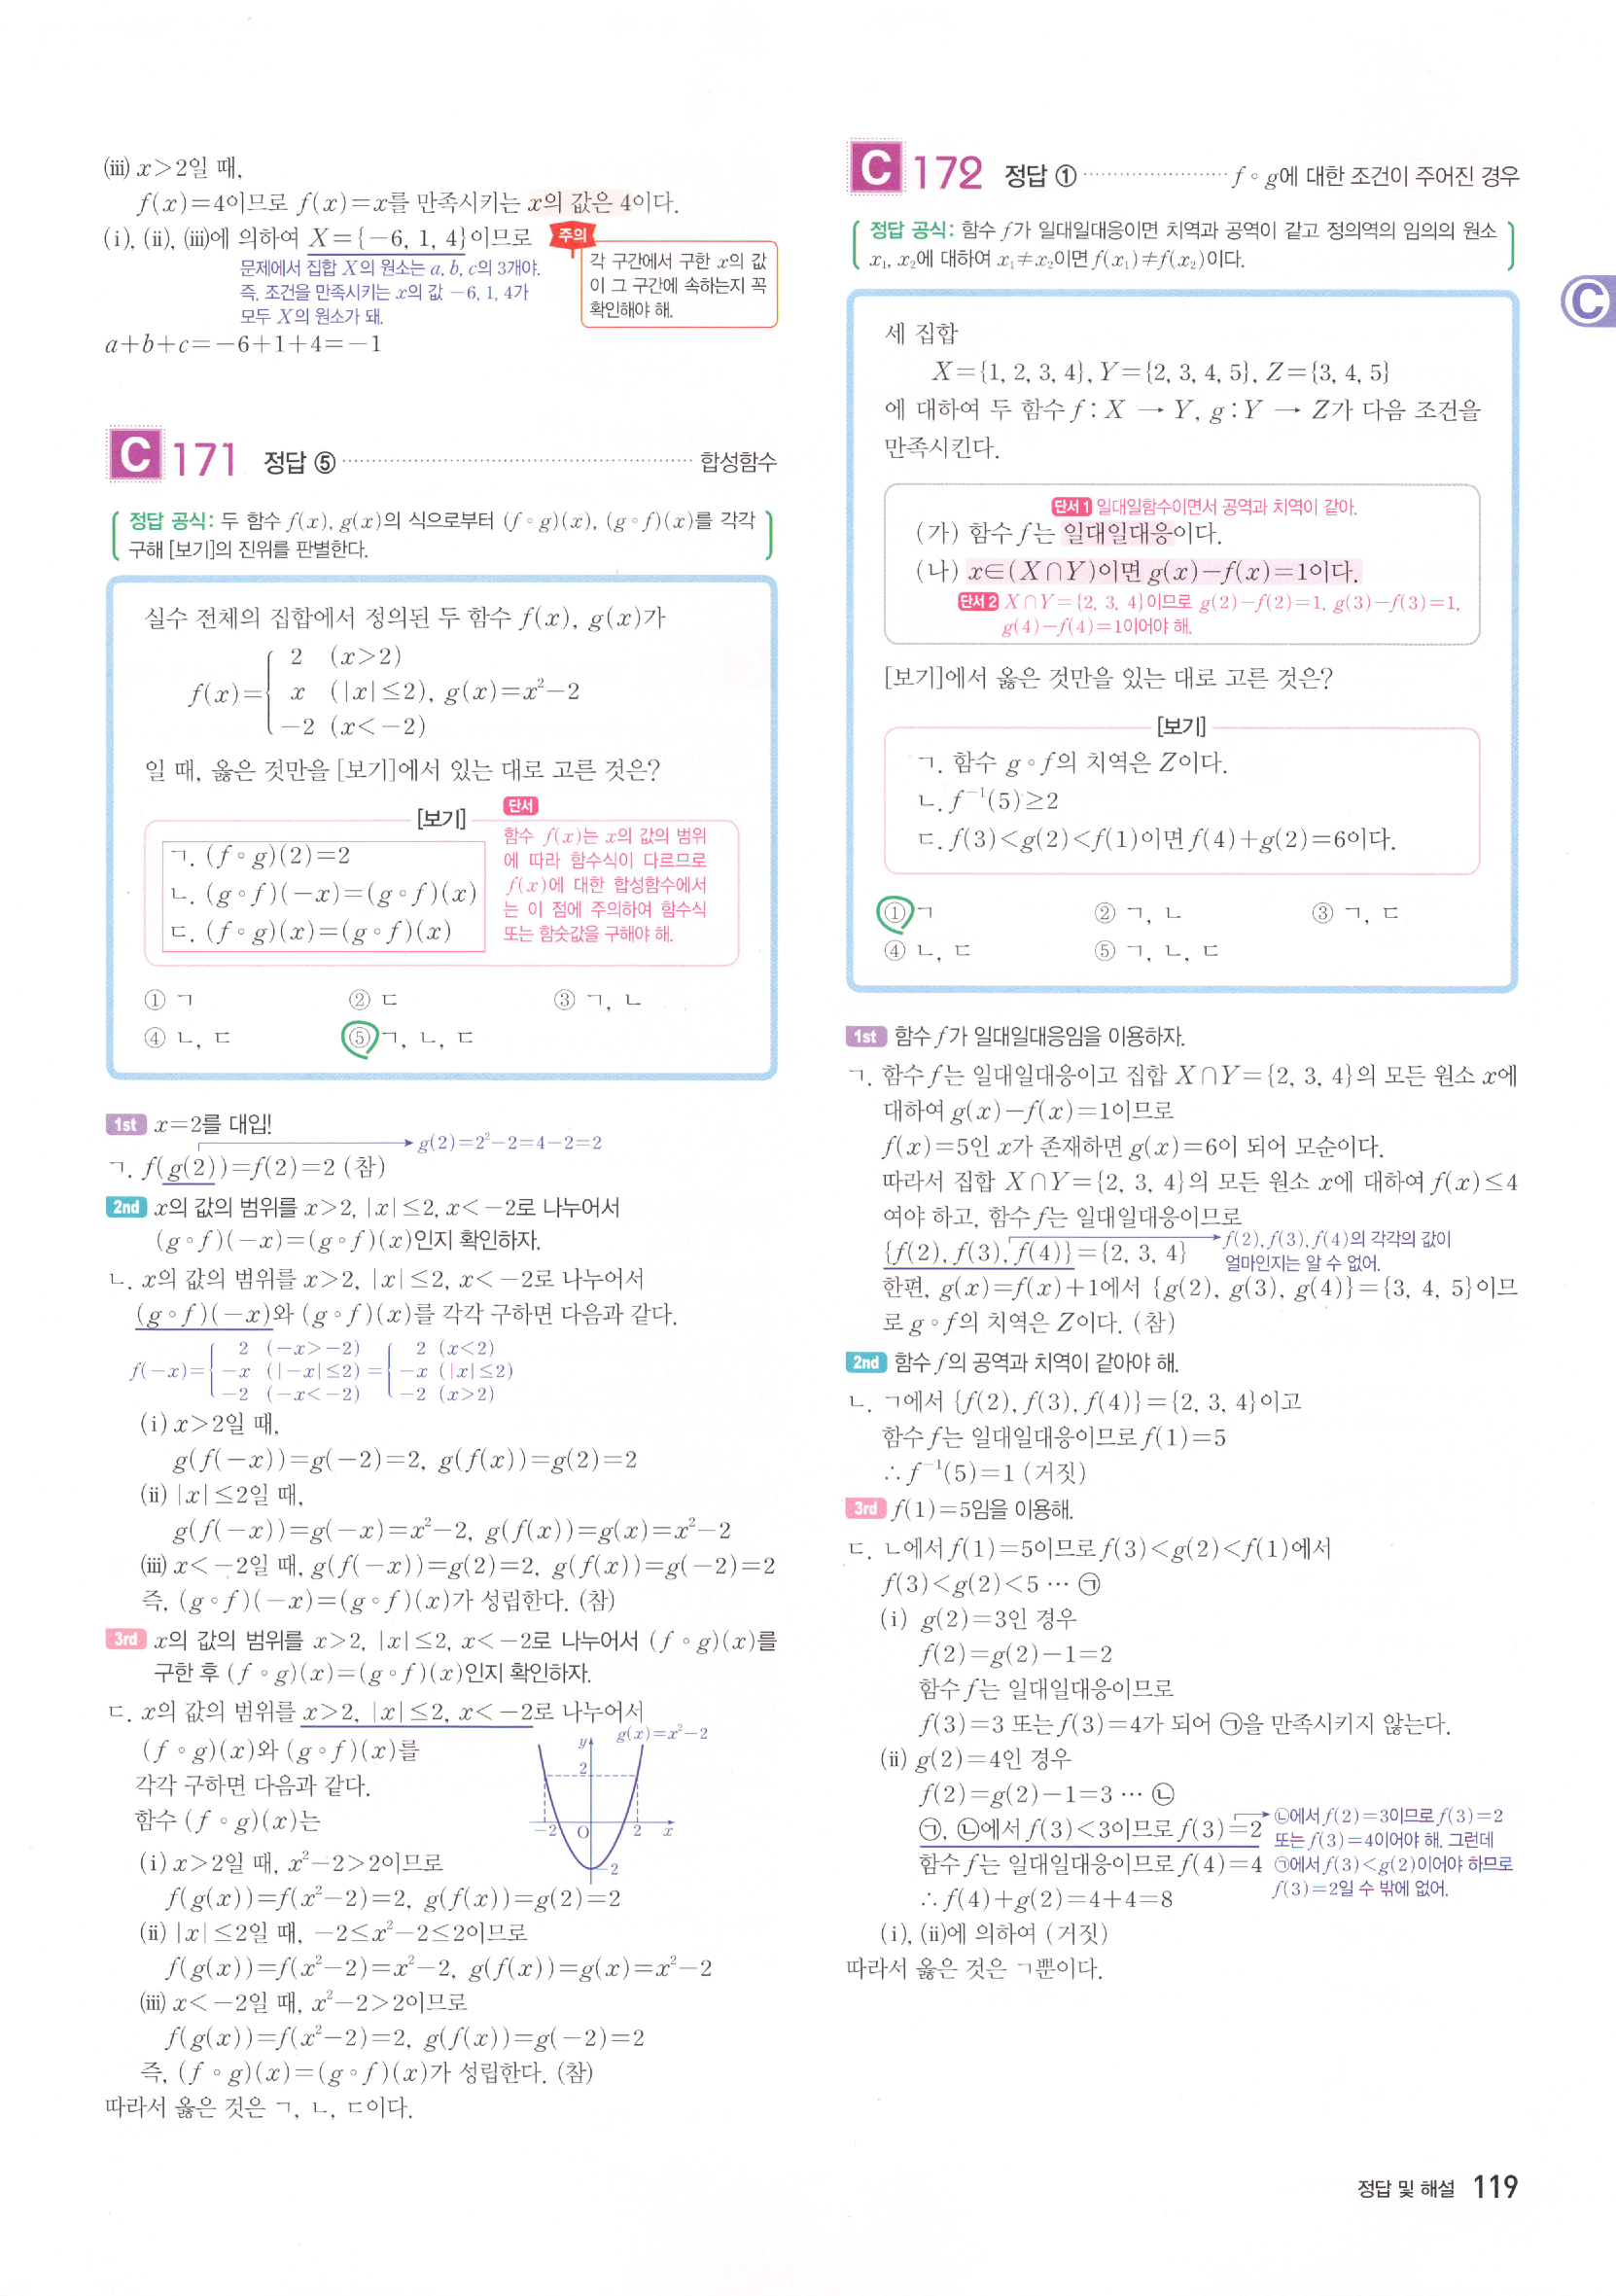 (ⅲ) x>2일 때,
f(x)=4이므로 f(x)=x를 만족시키는 x의 값은 4이다.
(ⅰ), (ⅱ), (ⅲ)에 의하여 X={-6, 1, 4}이므로
주의
각 구간에서 구한 x의 값
이 그 구간에 속하는지 꼭
확인해야 해.
문제에서 집합 X의 원소는 a, b, c의 3개야.
즉, 조건을 만족시키는 x의 값 -6, 1, 4가
모두 X의 원소가 돼.
a+b+c=-6+1+4=-1
C 171 정답 ⑤ 합성함수
정답 공식: 두 함수 f(x), g(x)의 식으로부터 (f∘g)(x), (g∘f)(x)를 각각
구해 [보기]의 진위를 판별한다.
실수 전체의 집합에서 정의된 두 함수 f(x), g(x)가
2 (x>2)
f(x)={ x (|x|≤2), g(x)=x²-2
-2 (x<-2)
일 때, 옳은 것만을 [보기]에서 있는 대로 고른 것은?
[보기]
ㄱ. (f∘g)(2)=2
ㄴ. (g∘f)(-x)=(g∘f)(x)
ㄷ. (f∘g)(x)=(g∘f)(x)
단서
함수 f(x)는 x의 값의 범위
에 따라 함수식이 다르므로
f(x)에 대한 합성함수에서
는 이 점에 주의하여 함수식
또는 함숫값을 구해야 해.
① ㄱ ② ㄷ ③ ㄱ, ㄴ
④ ㄴ, ㄷ ⑤ ㄱ, ㄴ, ㄷ
1st x=2를 대입!
g(2)=2²-2=4-2=2
ㄱ. f(g(2))=f(2)=2 (참)
2nd x의 값의 범위를 x>2, |x|≤2, x<-2로 나누어서
(g∘f)(-x)=(g∘f)(x)인지 확인하자.
ㄴ. x의 값의 범위를 x>2, |x|≤2, x<-2로 나누어서
(g∘f)(-x)와 (g∘f)(x)를 각각 구하면 다음과 같다.
2 (-x>-2) 2 (x<2)
f(-x)={ -x (|-x|≤2) ={ -x (|x|≤2)
-2 (-x<-2) -2 (x>2)
(ⅰ) x>2일 때,
g(f(-x))=g(-2)=2, g(f(x))=g(2)=2
(ⅱ) |x|≤2일 때,
g(f(-x))=g(-x)=x²-2, g(f(x))=g(x)=x²-2
(ⅲ) x<-2일 때, g(f(-x))=g(2)=2, g(f(x))=g(-2)=2
즉, (g∘f)(-x)=(g∘f)(x)가 성립한다. (참)
3rd x의 값의 범위를 x>2, |x|≤2, x<-2로 나누어서 (f∘g)(x)를
구한 후 (f∘g)(x)=(g∘f)(x)인지 확인하자.
ㄷ. x의 값의 범위를 x>2, |x|≤2, x<-2로 나누어서
(f∘g)(x)와 (g∘f)(x)를
각각 구하면 다음과 같다.
함수 (f∘g)(x)는
y g(x)=x²-2
2
-2 O 2 x
-2
(ⅰ) x>2일 때, x²-2>2이므로
f(g(x))=f(x²-2)=2, g(f(x))=g(2)=2
(ⅱ) |x|≤2일 때, -2≤x²-2≤2이므로
f(g(x))=f(x²-2)=x²-2, g(f(x))=g(x)=x²-2
(ⅲ) x<-2일 때, x²-2>2이므로
f(g(x))=f(x²-2)=2, g(f(x))=g(-2)=2
즉, (f∘g)(x)=(g∘f)(x)가 성립한다. (참)
따라서 옳은 것은 ㄱ, ㄴ, ㄷ이다.
C 172 정답 ① f∘g에 대한 조건이 주어진 경우
정답 공식: 함수 f가 일대일대응이면 치역과 공역이 같고 정의역의 임의의 원소
x₁, x₂에 대하여 x₁≠x₂이면 f(x₁)≠f(x₂)이다.
C
세 집합
X={1, 2, 3, 4}, Y={2, 3, 4, 5}, Z={3, 4, 5}
에 대하여 두 함수 f : X → Y, g : Y → Z가 다음 조건을
만족시킨다.
단서1 일대일함수이면서 공역과 치역이 같아.
(가) 함수 f는 일대일대응이다.
(나) x∈(X∩Y)이면 g(x)-f(x)=1이다.
단서2 X∩Y={2, 3, 4}이므로 g(2)-f(2)=1, g(3)-f(3)=1,
g(4)-f(4)=1이어야 해.
[보기]에서 옳은 것만을 있는 대로 고른 것은?
[보기]
ㄱ. 함수 g∘f의 치역은 Z이다.
ㄴ. f⁻¹(5)≥2
ㄷ. f(3)<g(2)<f(1)이면 f(4)+g(2)=6이다.
① ㄱ ② ㄱ, ㄴ ③ ㄱ, ㄷ
④ ㄴ, ㄷ ⑤ ㄱ, ㄴ, ㄷ
1st 함수 f가 일대일대응임을 이용하자.
ㄱ. 함수 f는 일대일대응이고 집합 X∩Y={2, 3, 4}의 모든 원소 x에
대하여 g(x)-f(x)=1이므로
f(x)=5인 x가 존재하면 g(x)=6이 되어 모순이다.
따라서 집합 X∩Y={2, 3, 4}의 모든 원소 x에 대하여 f(x)≤4
여야 하고, 함수 f는 일대일대응이므로
{f(2), f(3), f(4)}={2, 3, 4}
f(2), f(3), f(4)의 각각의 값이
얼마인지는 알 수 없어.
한편, g(x)=f(x)+1에서 {g(2), g(3), g(4)}={3, 4, 5}이므
로 g∘f의 치역은 Z이다. (참)
2nd 함수 f의 공역과 치역이 같아야 해.
ㄴ. ㄱ에서 {f(2), f(3), f(4)}={2, 3, 4}이고
함수 f는 일대일대응이므로 f(1)=5
∴ f⁻¹(5)=1 (거짓)
3rd f(1)=5임을 이용해.
ㄷ. ㄴ에서 f(1)=5이므로 f(3)<g(2)<f(1)에서
f(3)<g(2)<5 … ㉠
(ⅰ) g(2)=3인 경우
f(2)=g(2)-1=2
함수 f는 일대일대응이므로
f(3)=3 또는 f(3)=4가 되어 ㉠을 만족시키지 않는다.
(ⅱ) g(2)=4인 경우
f(2)=g(2)-1=3 … ㉡
㉠, ㉡에서 f(3)<3이므로 f(3)=2
함수 f는 일대일대응이므로 f(4)=4
∴ f(4)+g(2)=4+4=8
㉡에서 f(2)=3이므로 f(3)=2
또는 f(3)=4이어야 해. 그런데
㉠에서 f(3)<g(2)이어야 하므로
f(3)=2일 수 밖에 없어.
(ⅰ), (ⅱ)에 의하여 (거짓)
따라서 옳은 것은 ㄱ뿐이다.
정답 및 해설 119